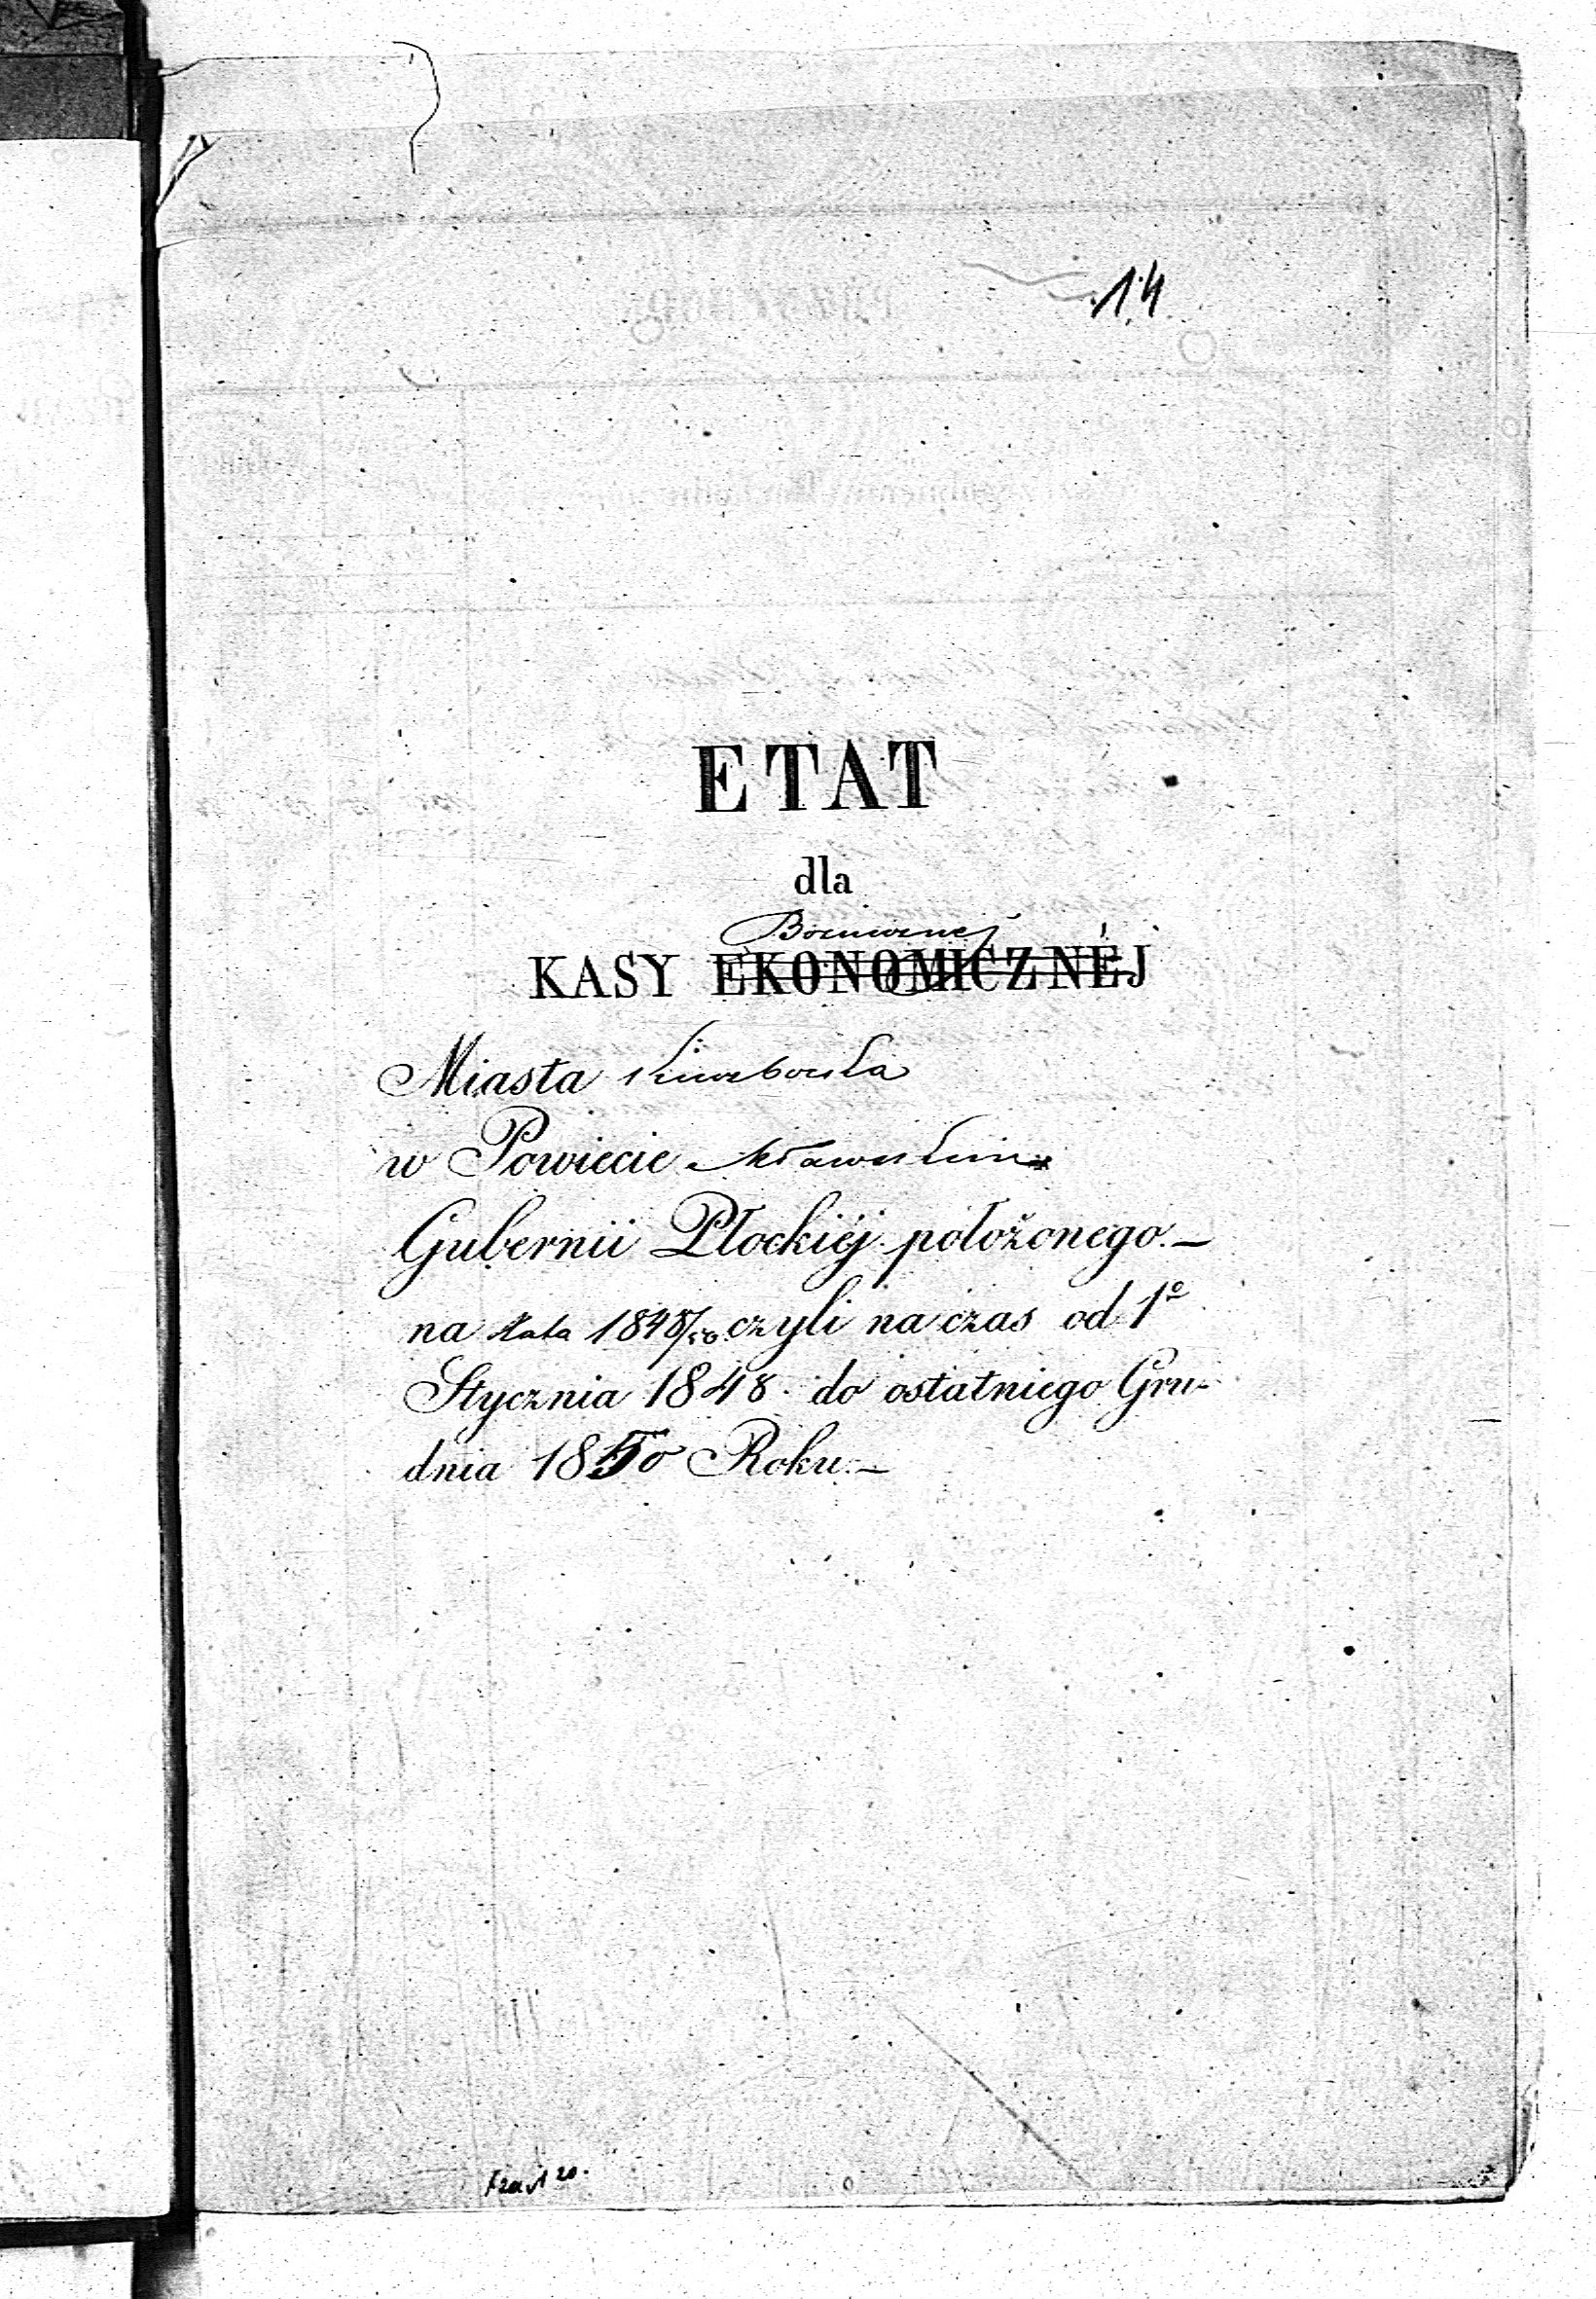 14
ETAT
dla
Boznicznej
KASY EKONOMICZNÉJ
Miasta Kuczborka
w Powiecie Mławskim
Gubernii Płockiéj położonego.—
na lata 1848/50 czyli na czas od 1º
Stycznia 1848 do ostatniego Gru-
dnia 1850 Roku.—